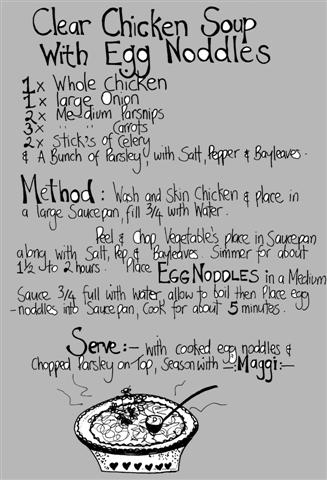 Clear Chicken Soup
With Egg Noddles
1x Whole Chicken
1x large Onion
2x Medium Parsnips
3x " " Carrots
2x Stick's of Celery
& A Bunch of Parsley, with Salt, Pepper & Bayleaves.
Method: Wash and Skin Chicken & place in
a large Saucepan, fill 3/4 with Water.
Peel & Chop Vegetable's place in Saucepan
along with Salt, Pep, & Bayleaves. Simmer for about
1½ to 2 hours. Place EGG NOODLES in a Medium
Sauce 3/4 full with water, allow to boil then Place egg
-noddles into Saucepan, Cook for about 5 minutes.
Serve:- with cooked egg noddles &
Chopped Parsley on Top, Season with -:Maggi:-